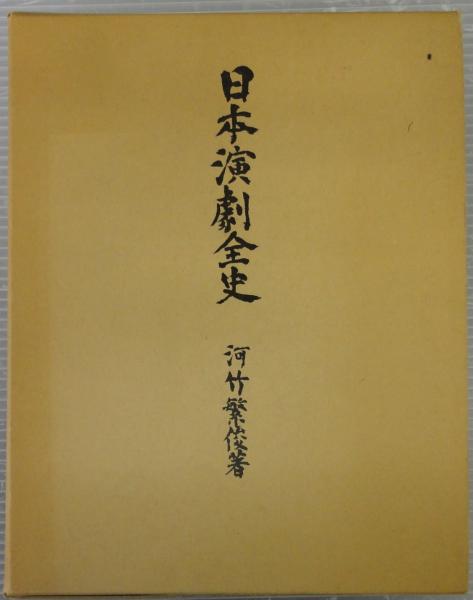 日本演劇全史
河竹繁俊著